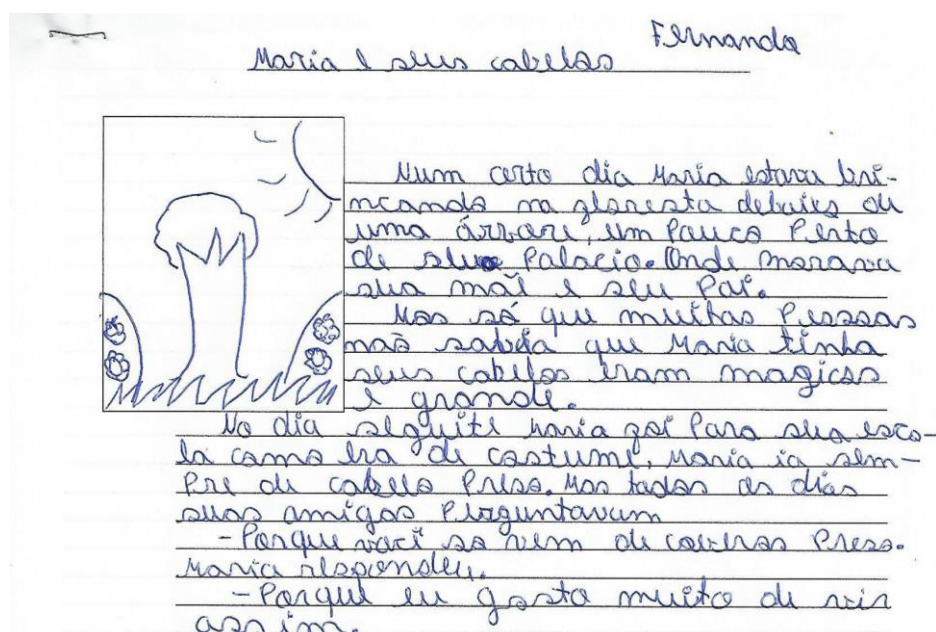 Fernanda
Maria e seus cabelos
Num certo dia Maria estava brin-
incando na floresta debaixo de
uma árvore, um pouco Perto
de seu Palacio. Onde morava
sua mãe e seu Pai.
Mas só que muitas Pessoas
não sabia que Maria tinha
seus cabelos eram magicos
e grande.
No dia seguite Maria foi Para sua esco-
la como era de costume, Maria ia sem-
Pre de cabelo Preso. Mas todos os dias
suas amigas Perguntavam
- Porque você so vem de cabelos Preso.
Maria respondeu.
- Porque eu gosto muito de vir
assim.